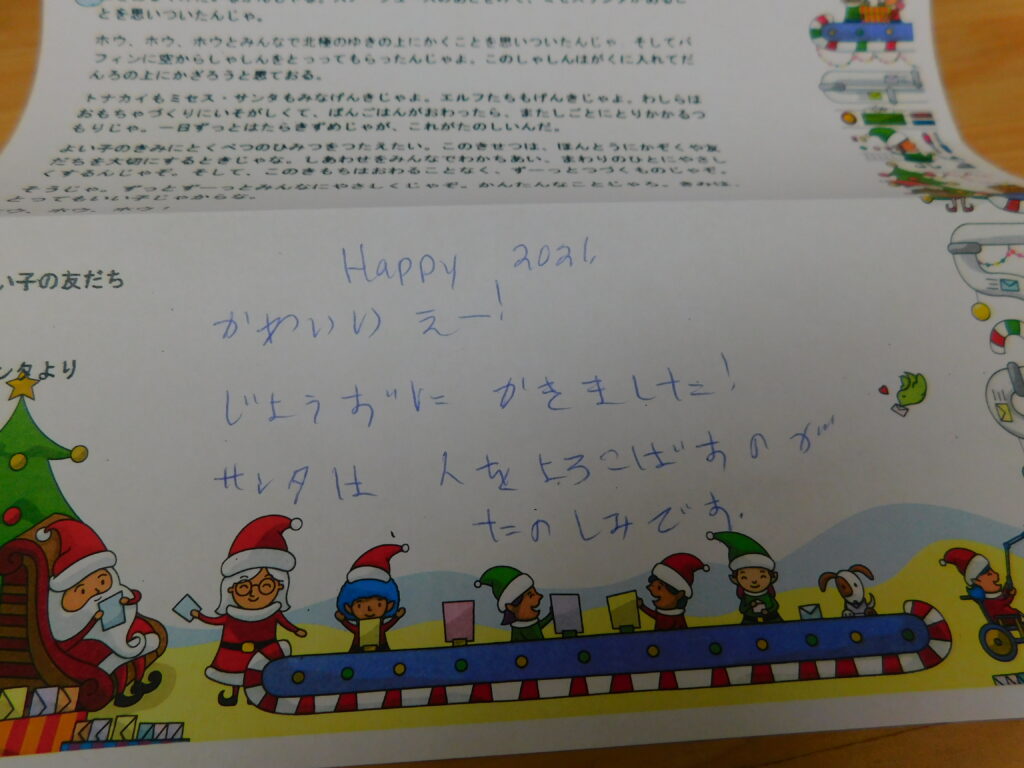 とを思いついたんじゃ。
ホウ、ホウ、ホウとみんなで北極のゆきの上にかくことを思いついたんじゃ。そしてパ
フィンに空からしゃしんをとってもらったんじゃよ。このしゃしんはがくに入れてだ
んろの上にかざろうと思ておる。
トナカイもミセス・サンタもみなげんきじゃよ。エルフたちもげんきじゃよ。わしらは
おもちゃづくりにいそがしくて、ばんごはんがおわったら、またしごとにとりかかるつ
もりじゃ。一日ずっとはたらきずめじゃが、これがたのしいんだ。
よい子のきみにとくべつのひみつをつたえたい。このきせつは、ほんとうにかぞくや友
だちを大切にするときじゃな。しあわせをみんなでわかちあい、まわりのひとにやさし
くするんじゃぞ。そして、このきもちはおわることなく、ずーっとつづくものじゃぞ。
そうじゃ。ずっとずーっとみんなにやさしくじゃぞ。かんたんなことじゃろ。きみは、
とってもいい子じゃからな。
ホウ、ホウ！
い子の友だち
ンタより
Happy 2021.
かわいい えー!
じょうずに かきました!
サンタは 人をよろこばすのが
たのしみです.